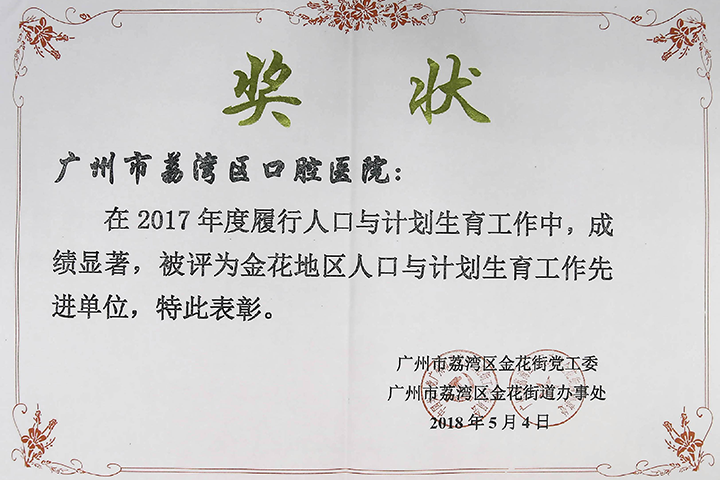 奖状
广州市荔湾区口腔医院：
在2017年度履行人口与计划生育工作中，成
绩显著，被评为金花地区人口与计划生育工作先
进单位，特此表彰。
广州市荔湾区金花街党工委
广州市荔湾区金花街道办事处
2018年5月4日